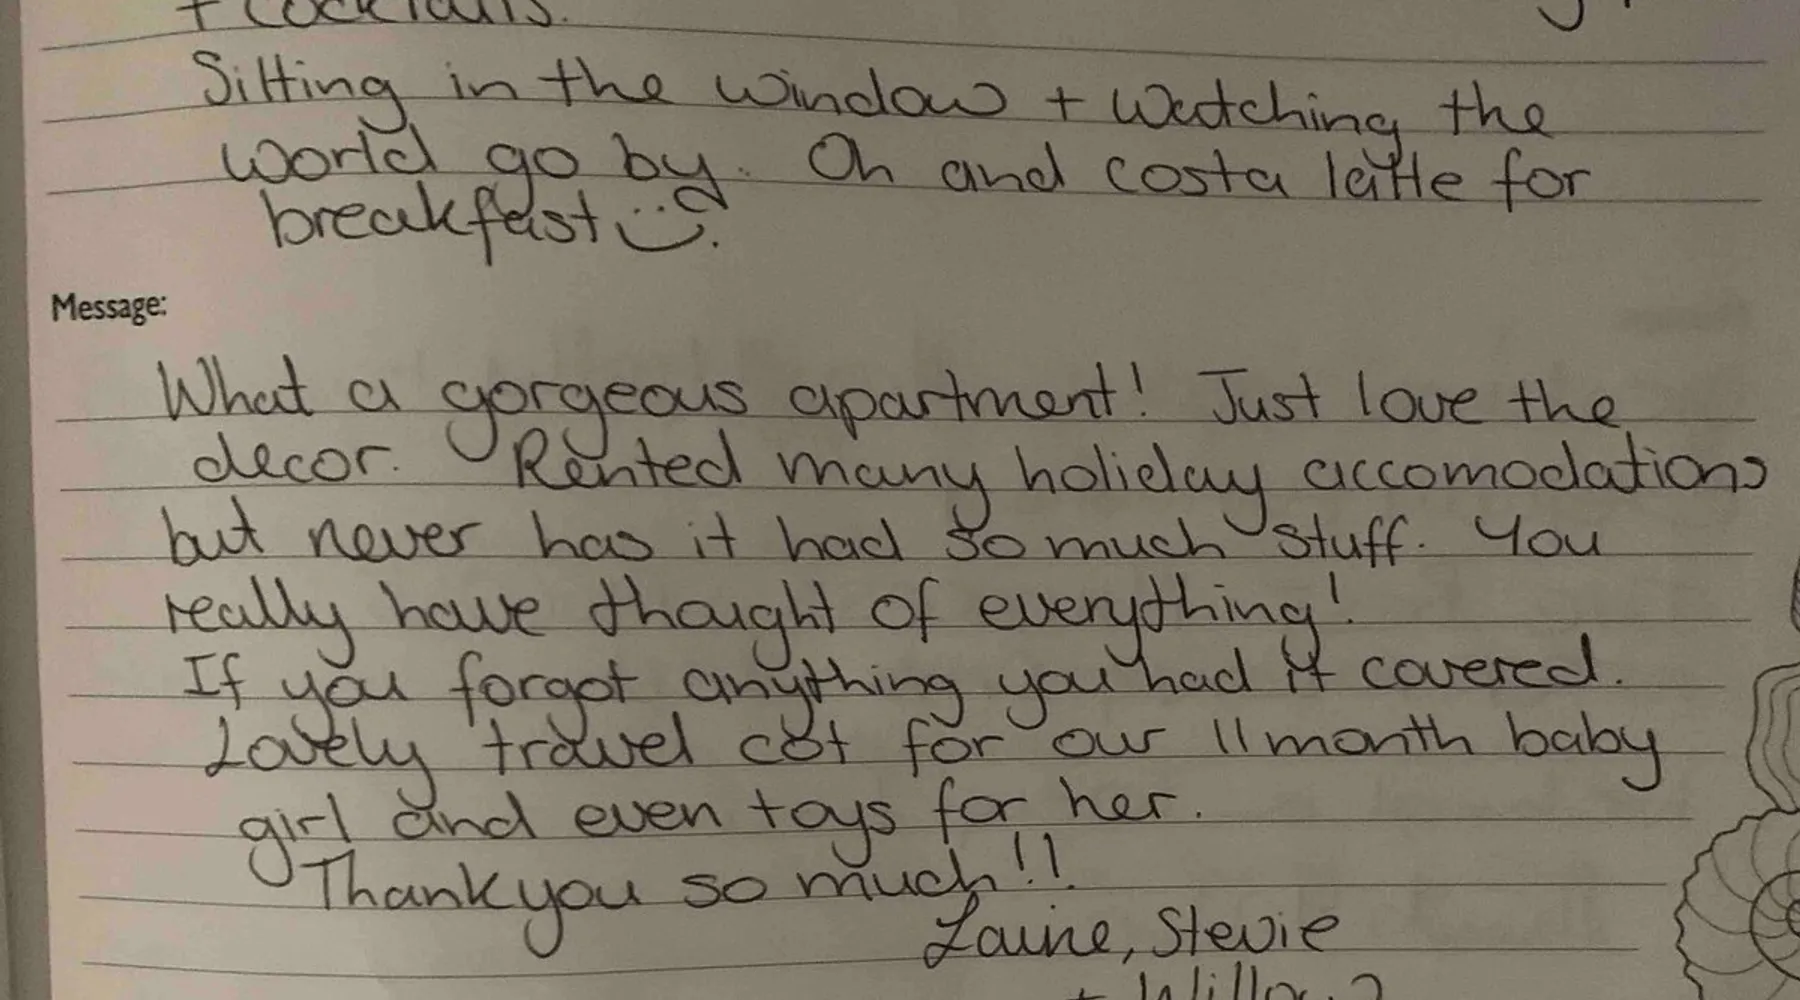 + cocktails.
Sitting in the window + watching the
world go by. Oh and costa latte for
breakfast
Message:
What a gorgeous apartment! Just love the
decor. Rented many holiday accomodations
but never has it had so much stuff. You
really have thought of everything!
If you forgot anything you had it covered.
Lovely travel cot for our 11 month baby
girl and even toys for her.
Thankyou so much!!
Laine, Stevie
+ Willow